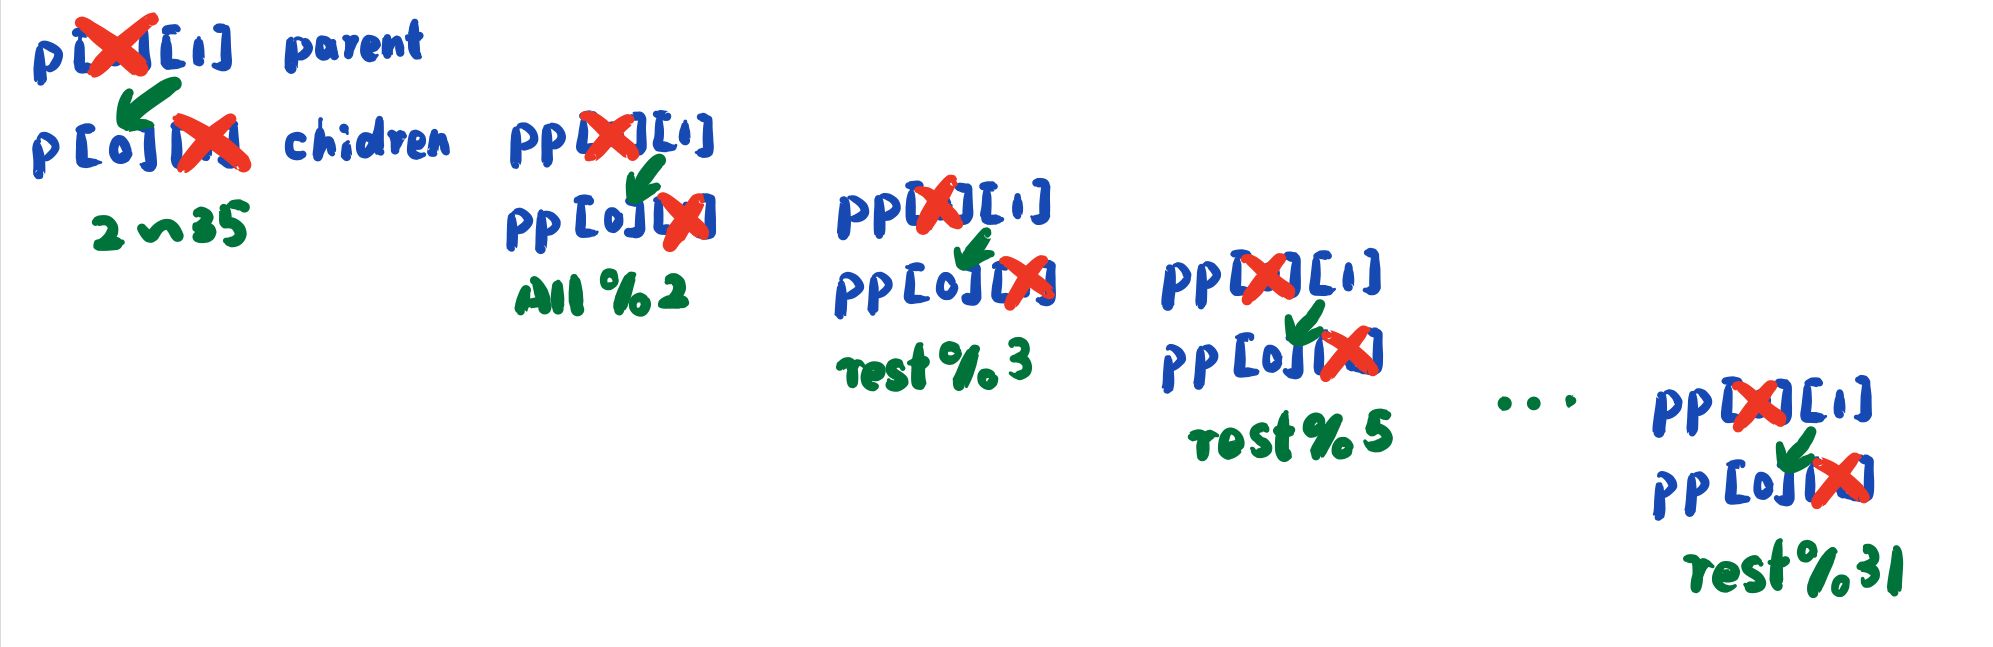 p[ ][1] parent
p[0][ ] chidren
2~35
pp[ ][1]
pp[0][ ]
All%2
pp[ ][1]
pp[0][ ]
rest%3
pp[ ][1]
pp[0][ ]
rest%5
...
pp[ ][1]
pp[0][ ]
rest%31